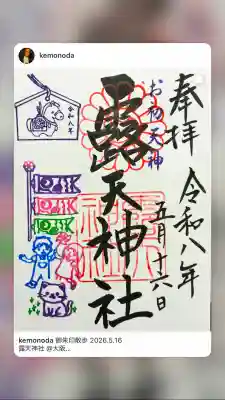 kemonoda
奉拝
令和八年
五月十六日
お初天神
露天神社
令和八年
kemonoda 御朱印散歩 2026.5.16
露天神社 @大阪...